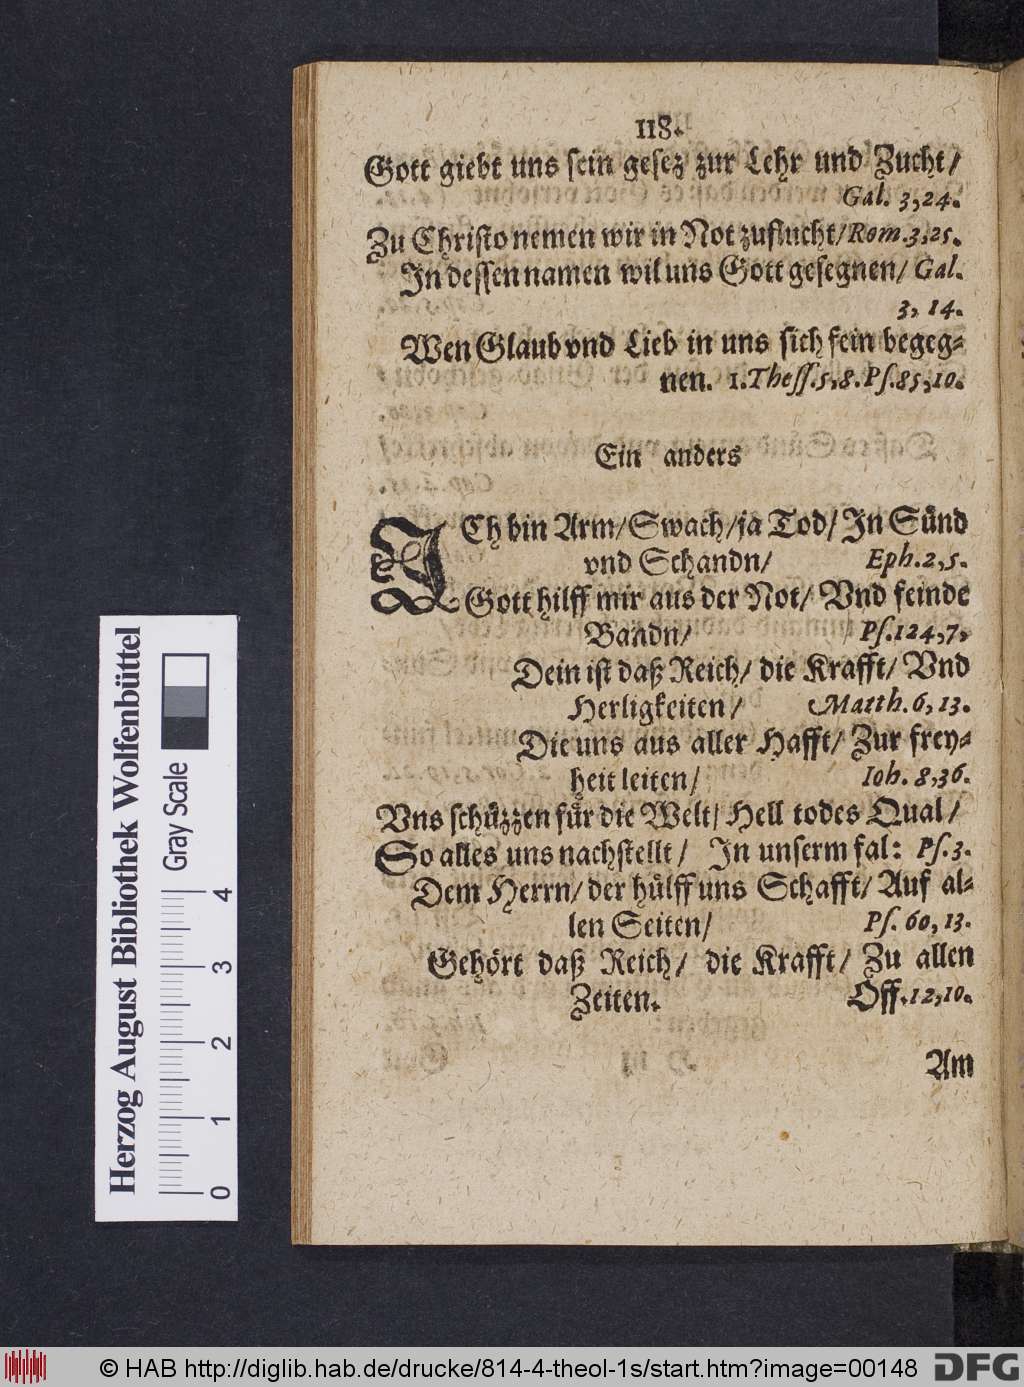 118.
Gott giebt uns sein gesez zur Lehr und Zucht/
Gal. 3,24.
Zu Christo nemen wir in Not zuflucht/ Rom. 3,25.
In dessen namen wil uns Gott gesegnen/ Gal.
3, 14.
Wen Glaub vnd Lieb in uns sich fein begeg-
nen. 1. Thess. 5,8. Ps. 85,10.
Ein anders
ICh bin Arm/ Swach/ ja Tod/ In Sünd
vnd Schandn/ Eph. 2,5.
Gott hilff mir aus der Not/ Vnd feinde
Bandn/ Ps. 124,7,
Dein ist daß Reich/ die Krafft/ Vnd
Herligkeiten/ Matth. 6,13.
Die uns aus aller Hafft/ Zur frey-
heit leiten/ Ioh. 8,36.
Vns schüzzen für die Welt/ Hell todes Qual/
So alles uns nachstellt/ In unserm fal: Ps. 3.
Dem Herrn/ der hülff uns Schafft/ Auf al-
len Seiten/ Ps. 60,13.
Gehört daß Reich/ die Krafft/ Zu allen
Zeiten. Off. 12,10.
Am
Herzog August Bibliothek Wolfenbüttel
Gray Scale
0 1 2 3 4
© HAB http://diglib.hab.de/drucke/814-4-theol-1s/start.htm?image=00148
DFG